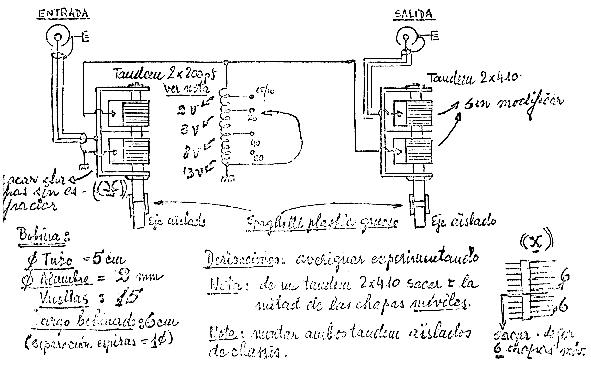 ENTRADA
SALIDA
Tandem 2x200pf
ver nota
Tandem 2x410
sin modificar
15/10
20
40
80
2v
3v
8v
13v
sacar chapas sin espaciar
(X)
Eje aislado
Spaghetti plastico grueso
Eje aislado
Bobina:
Ø Tubo = 5 cm
Ø Alambre = 2 mm
Vueltas: 15
Largo bobinado: 6 cm
(separación espiras = 1Ø)
Derivaciones: averiguar experimentando
Nota: de un tandem 2x410 sacar la
mitad de las chapas móviles.
Nota: montar ambos tandem aislados
de chasis.
(X)
6
6
sacar - dejar
6 chapas